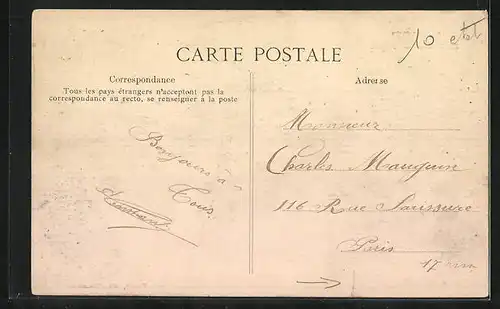 10
CARTE POSTALE
Correspondance
Tous les pays étrangers n'acceptont pas la
correspondance au recto, se renseigner à la poste
Bonjours à
Tous
Adresse
Monsieur
Charles Mauguin
116 Rue Saussure
Paris
17